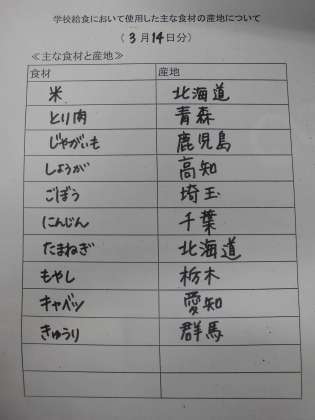 学校給食において使用した主な食材の産地について
(3月14日分)
≪主な食材と産地≫
食材 産地
米 北海道
とり肉 青森
じゃがいも 鹿児島
しょうが 高知
ごぼう 埼玉
にんじん 千葉
たまねぎ 北海道
もやし 栃木
キャベツ 愛知
きゅうり 群馬